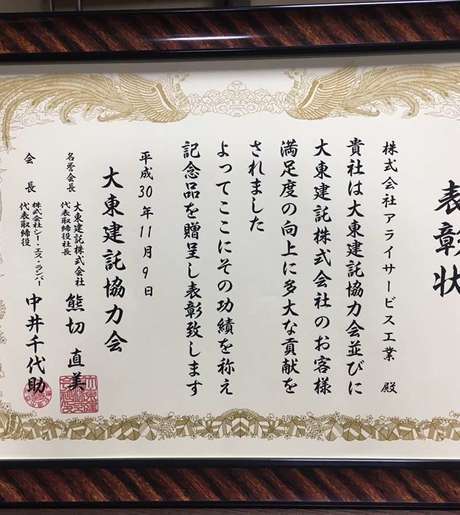 表彰状
株式会社アライサービス工業 殿
貴社は大東建託協力会並びに
大東建託株式会社のお客様
満足度の向上に多大な貢献を
されました
よってここにその功績を称え
記念品を贈呈し表彰致します
平成30年11月9日
大東建託協力会
名誉会長 大東建託株式会社
代表取締役社長 熊切 直美
会長 株式会社シー・エス・ランバー
代表取締役 中井千代助